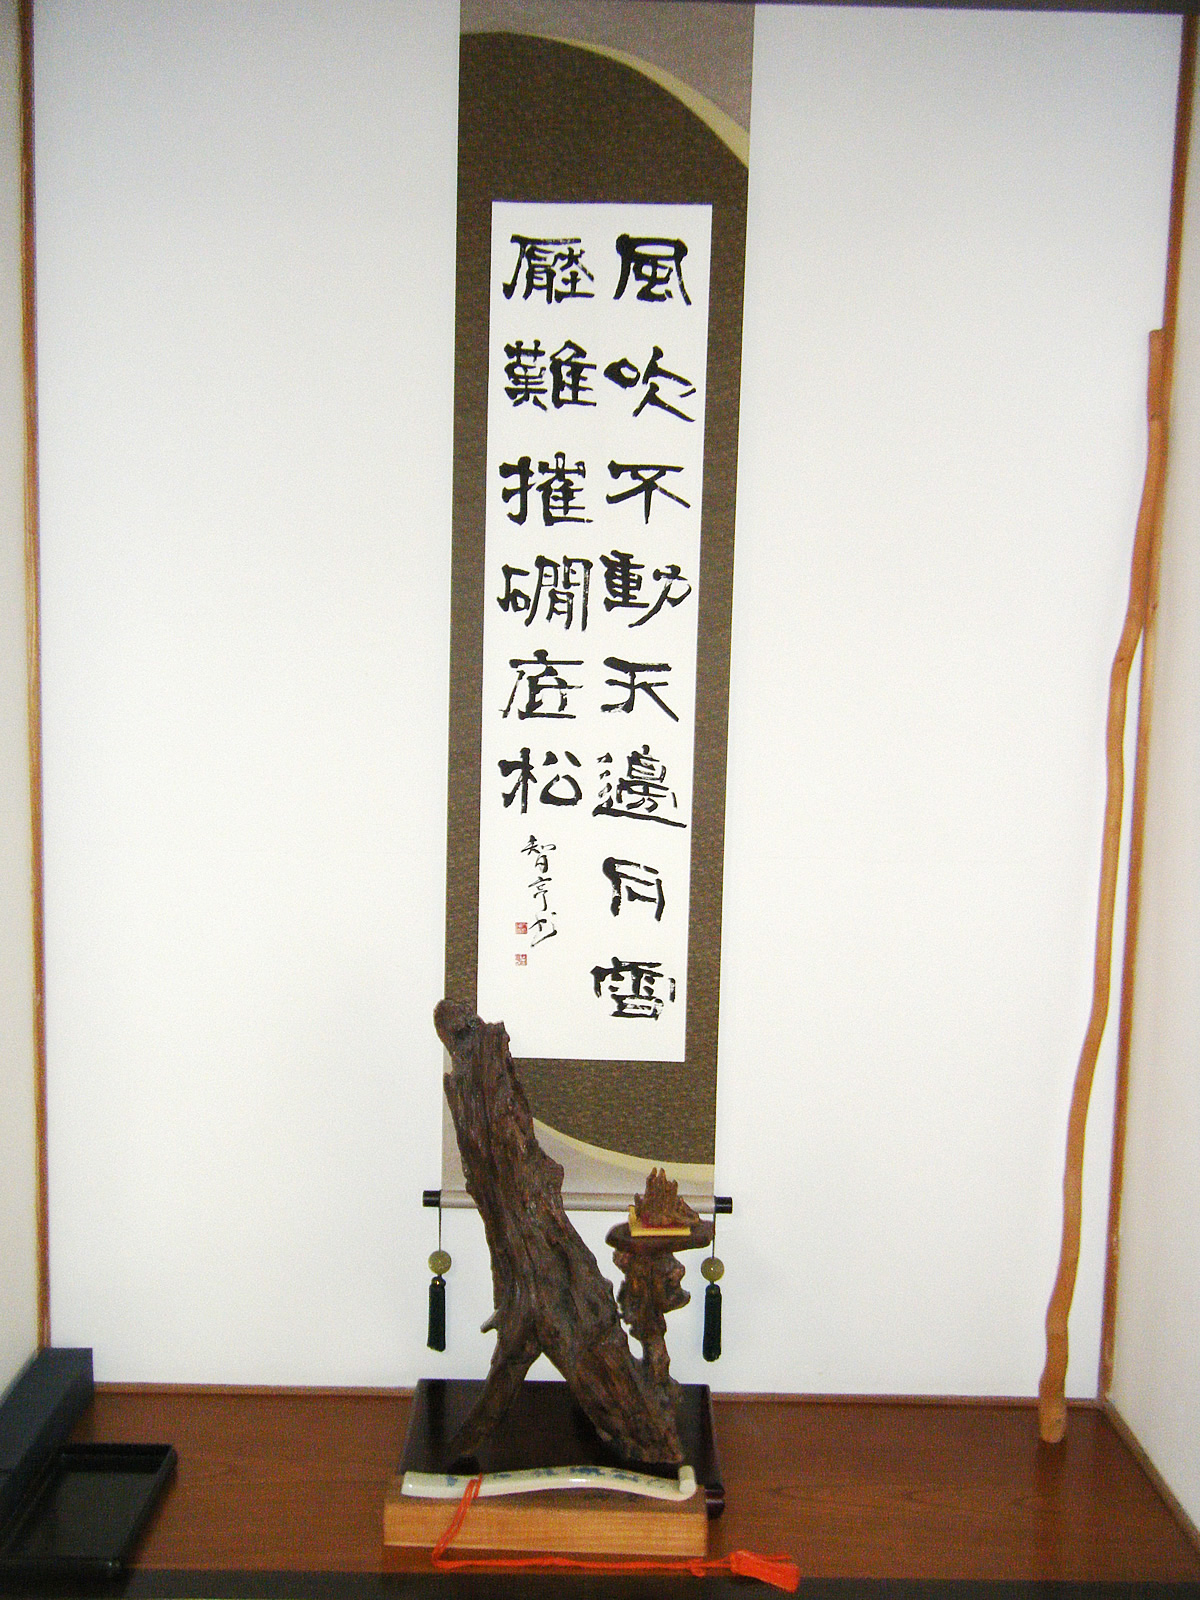 風吹不動天邊月雪
壓難摧磵底松
智亨書